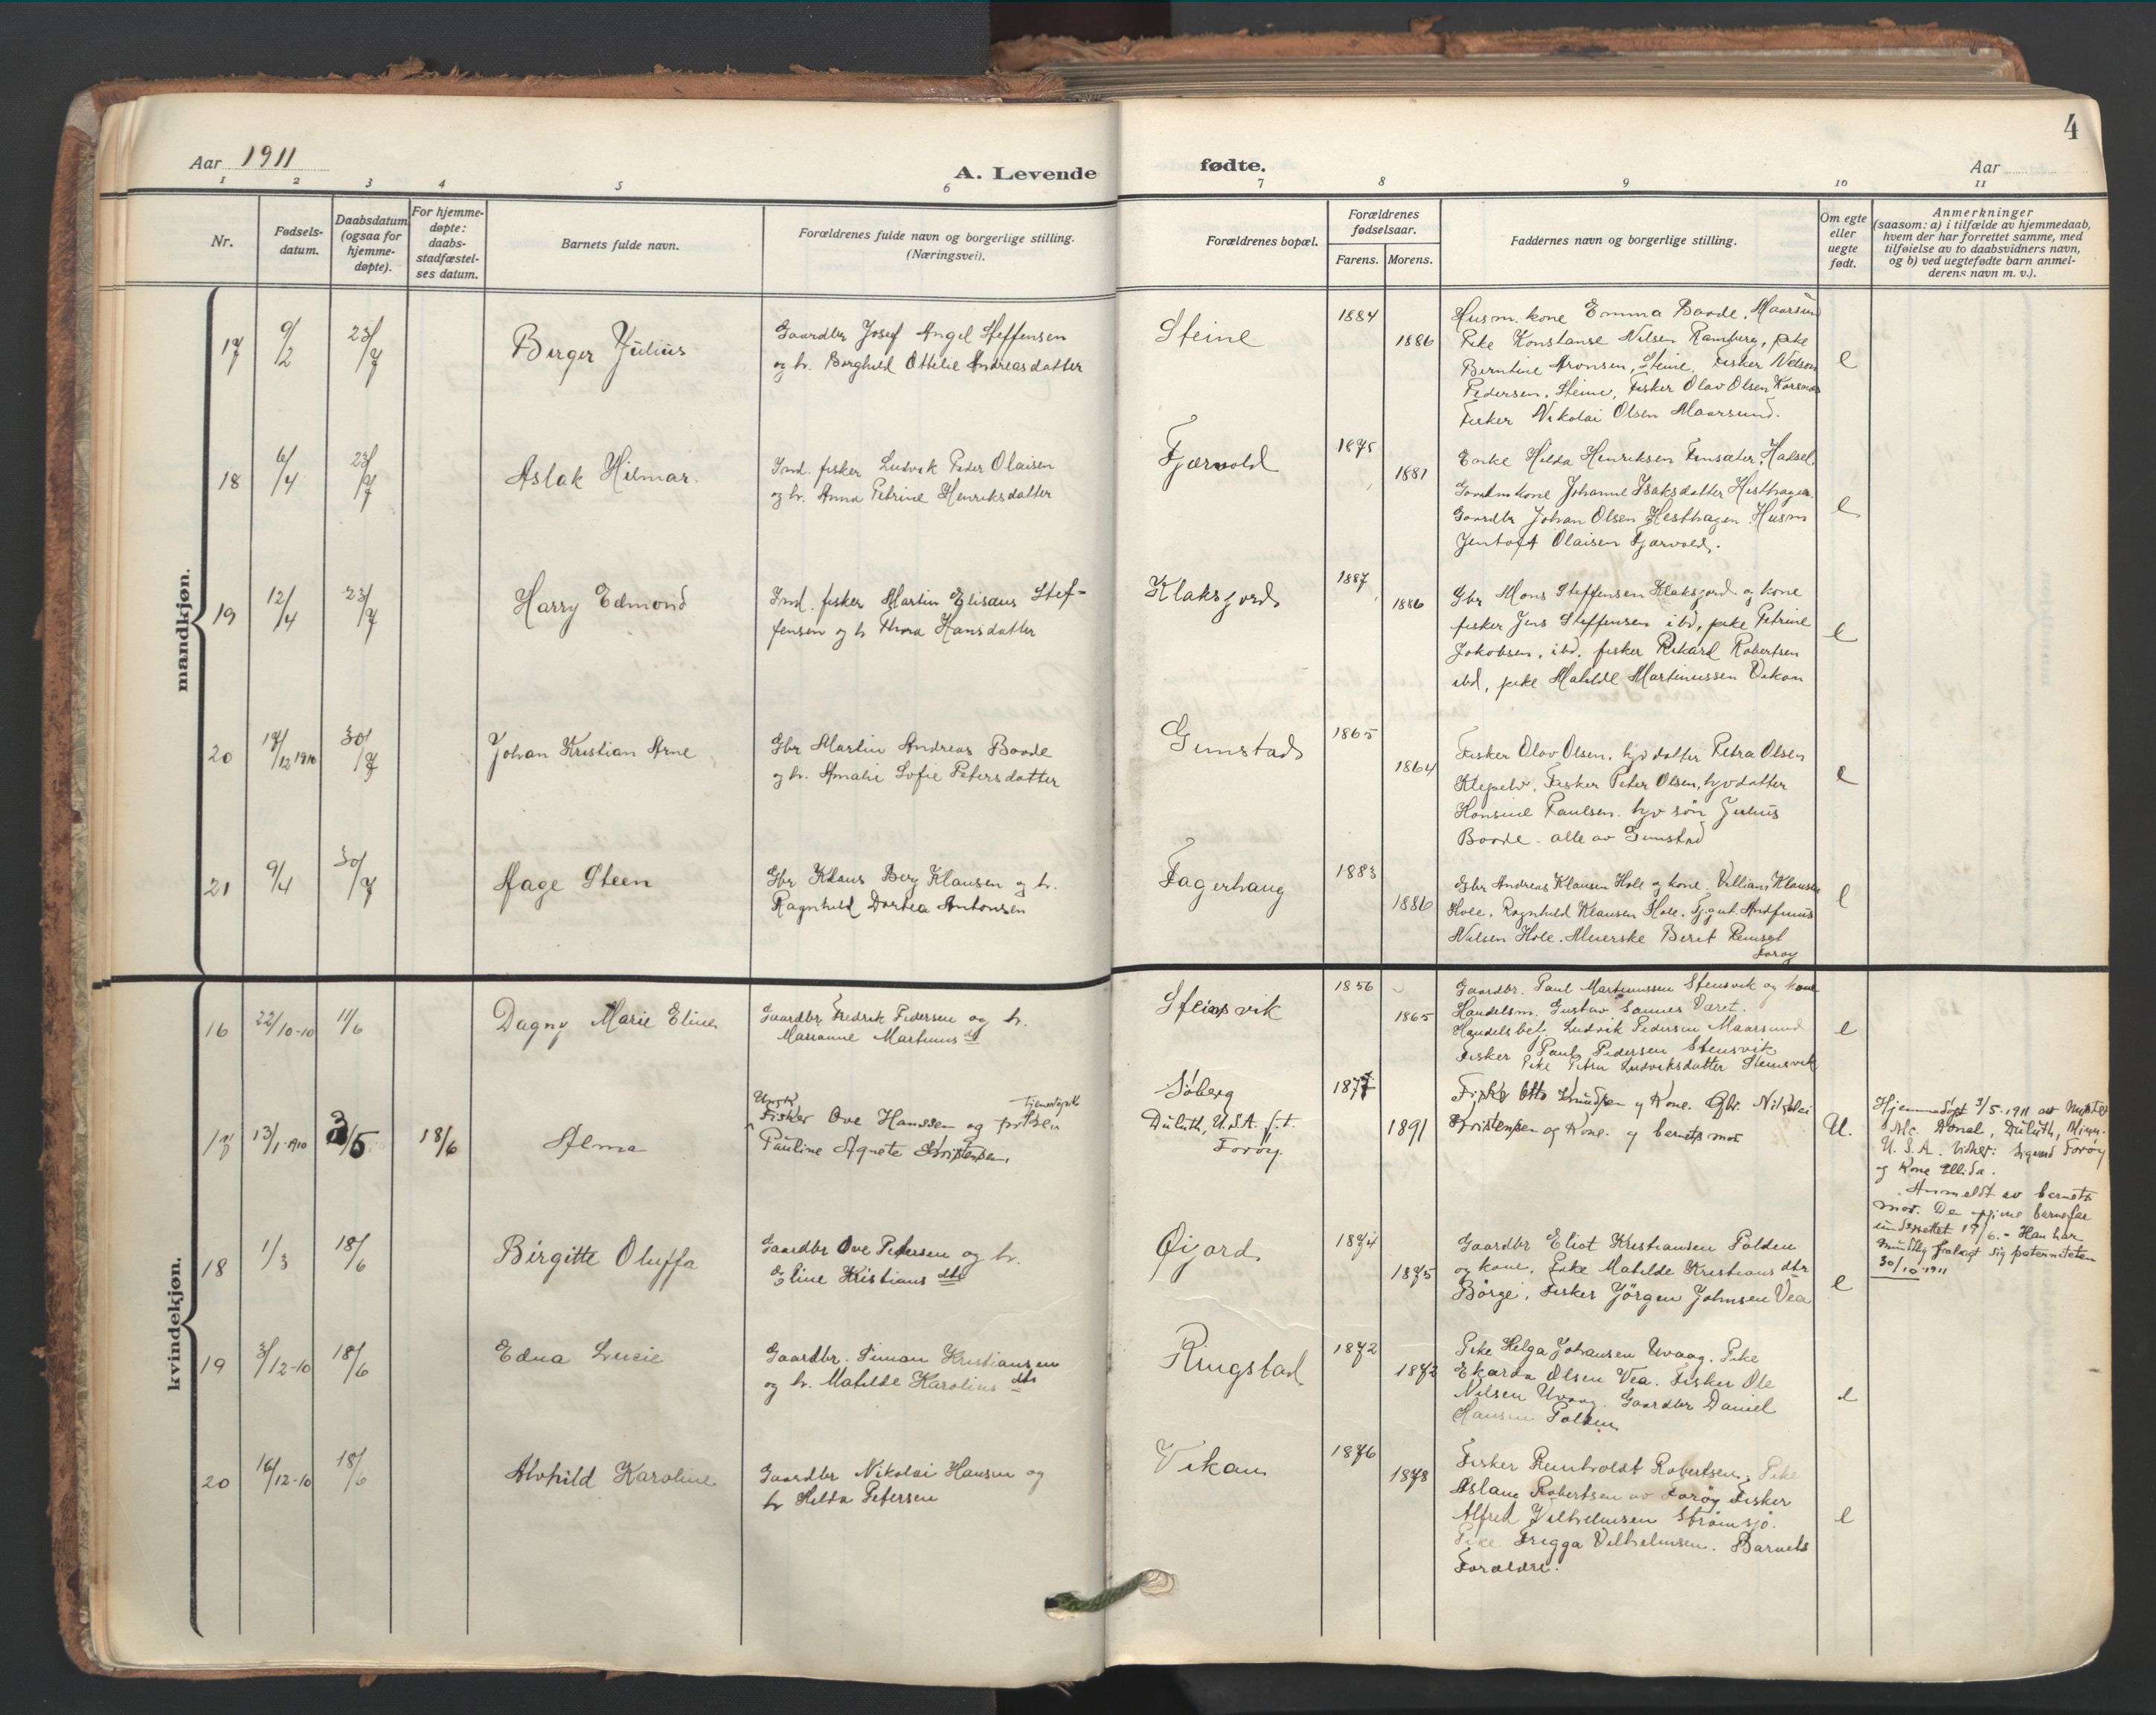 4
Aar 1911
A. Levende fødte.
Aar
1 2 3 4 5 6 7 8 9 10 11
Nr.
Fødsels-
datum.
Daabsdatum
(ogsaa for
hjemme-
døpte).
For hjemme-
døpte:
daabs-
stadfæstel-
ses datum.
Barnets fulde navn.
Forældrenes fulde navn og borgerlige stilling.
(Næringsvei).
Forældrenes bopæl.
Forældrenes
fødselsaar.
Farens. Morens.
Faddernes navn og borgerlige stilling.
Om egte
eller
uegte
født.
Anmerkninger
(saasom: a) i tilfælde av hjemmedaab,
hvem der har forrettet samme, med
tilføielse av to daabsvidners navn,
og b) ved uegtefødte barn anmel-
derens navn m. v.).
mandkjøn.
17 9/2 23/7 Birger Julius
Gaardbr Josef Angel Steffensen
og h. Borghild Ottilie Andreasdatter
Steine
1884
1886
Husm. kone Emma Boode, Maarsund
Pike Konstanse Nilsen Ramberg, pike
Berntine Aronsen, Steine, Fisker Nelson
Pedersen, Steine, Fisker Olav Olsen
Fisker Nikolai Olsen Maarsund.
e
18 6/4 23/7 Aslak Hilmar.
Ind. fisker Ludvik Peder Olaisen
og h. Anna Petrine Henriksdatter
Fjærvold
1875
1881
Enke Hilda Henriksen Finsæter, Hadsel
Gaardm kone Johanne Isaksdatter Hesthagen
Gaardbr Johan Olsen Hesthagen. Husm
Jentoft Olaisen Fjærvold.
e
19 12/4 23/7 Harry Edmond
Ind. fisker Martin Elisæus Stef-
fensen og h Thora Hansdatter
Klaksjord
1887
1886
Gbr Mons Steffensen Klaksjord og kone
fisker Jens Steffensen ibd, pike Petrine
Jakobsen, ibd. fisker Rikard Robertsen
ibd, pike Matilde Martinussen Vikan
e
20 17/12 1910 30/7 Johan Kristian Arne
Gbr Martin Andreas Boode
og h. Amalie Sofie Petersdatter
Gimstad
1865
1864
Fisker Olav Olsen, hjv datter Petra Olsen
Klepelv, Fisker Peter Olsen, hjvdatter
Hansine Paulsen. hjv søn Julius
Boode. alle av Gimstad
e
21 9/4 30/7 Aage Steen
Gbr Klaus Berg Klausen og h.
Ragnhild Dortea Antonsen
Fagerhaug
1883
1886
Gbr Andreas Klausen Hole og kone. Villians Klausen
Hole, Ragnhild Klausen Hole. Tj.gut Andfinus
Nilsen Hole. Meierske Berit
Forøy
e
kvindekjøn.
16 22/10-10 11/6 Dagny Marie Eline
Gaardbr. Fredrik Pedersen og h.
Marianne Martinus dt
Steinsvik
1856
1865
Gaardbr. Paul Martinussen Stensvik og kone
Handelsm. Gustav Sannes Været.
Handelsbetj. Ludvik Pedersen Maarsund
Fisker Paul Pedersen Stensvik
Pike Petra Ludviksdatter Steinsvik
e
17 13/1-1910 3/5 18/6 Alma
Ungk
Fisker Ove Hanssen og tjenestepike piken
Pauline Agnete Kristensen,
Søberg
Duluth, U.S.A. f.t.
Forøy.
1877
1891
Fisker Otto Knudsen og Kone. Gbr. Nikolai
Kristensen og Kone. og barnets mor
U.
Hjemmedøpt 3/5-1911 av Mister
Mc. Donal, Duluth, Minn.
U.S.A. Vidner: Sigurd Forøy
og Kone Ellida.
Anmeldt av barnets
mor. Den opgivne barnefar
underrettet 19/6. - Han har
mundtlig fralagt sig paterniteten
30/10 1911
18 1/3 18/6 Birgitte Oluffa
Gaardbr Ove Pedersen og h.
Eline Kristians dtr
Øijord
1874
1875
Gaardbr Eliot Kristiansen Polden
og kone, Pike Matilde Kristians dtr
Børge, Fisker Jörgen Johnsen Vea
e
19 3/12-10 18/6 Edna Lucie
Gaardbr. Timan Kristiansen
og h. Matilde Karolius dtr
Ringstad
1872
1872
Pike Helga Johansen Uvaag. Pike
Ekarda Olsen Vea. Fisker Ole
Nilsen Uvaag. Gaardbr Daniel
Hansen Polden
e
20 16/12-10 18/6 Alvhild Karoline
Gaardbr Nikolai Hansen og
h Hilda Petersen
Vikan
1876
1878
Fisker Reinholdt Robertsen, Pike
Aslaug Robertsen av Forøy Fisker
Alfred Vilhelmsen Strømsjø.
Pike Frigga Vilhelmsen. Barnets
Forældre.
e